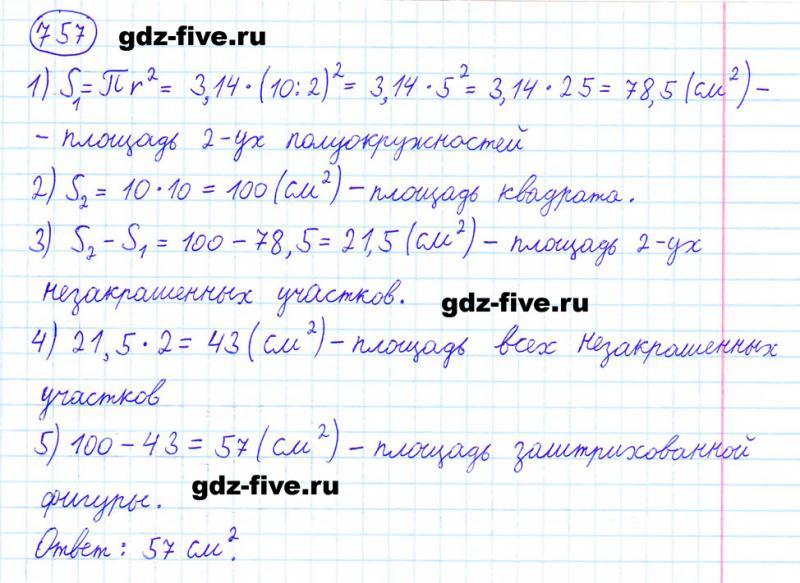 757 gdz-five.ru
1) S₁ = πr² = 3,14 · (10:2)² = 3,14 · 5² = 3,14 · 25 = 78,5 (см²) –
– площадь 2-ух полуокружностей
2) S₂ = 10 · 10 = 100 (см²) – площадь квадрата.
3) S₂ – S₁ = 100 – 78,5 = 21,5 (см²) – площадь 2-ух
незакрашенных участков. gdz-five.ru
4) 21,5 · 2 = 43 (см²) – площадь всех незакрашенных
участков
5) 100 – 43 = 57 (см²) – площадь заштрихованной
фигуры. gdz-five.ru
Ответ: 57 см².